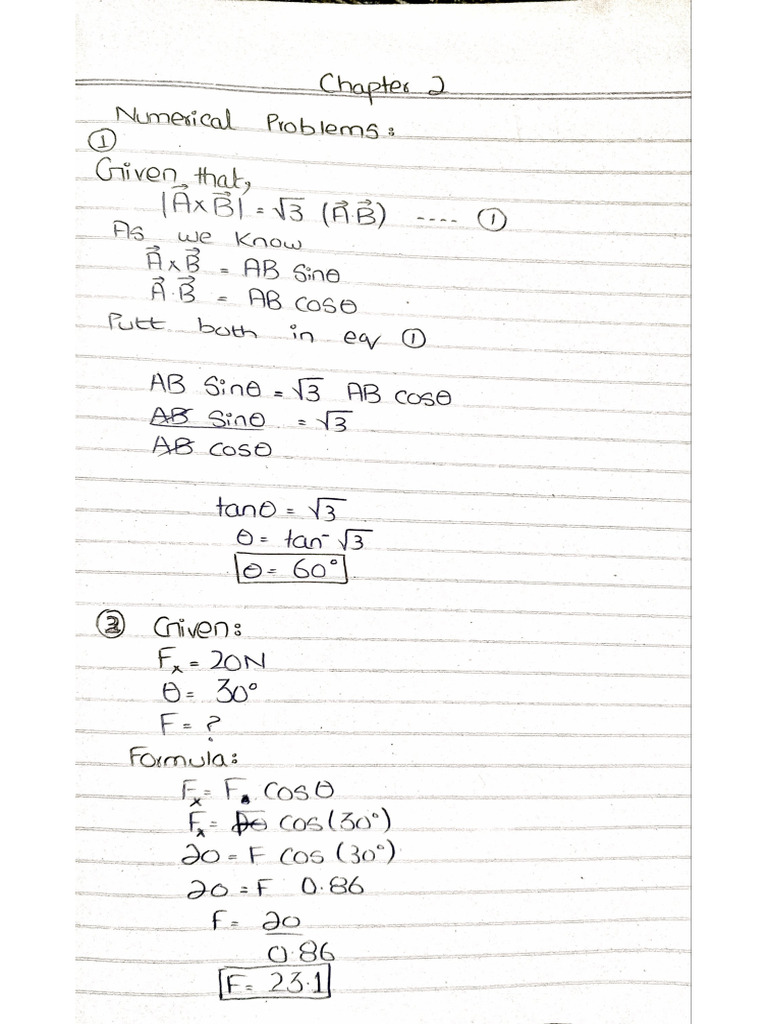 Chapter 2
Numerical Problems:
①
Given that,
|A⃗×B⃗| = √3 (A⃗B⃗) ---- ①
As we know
A⃗×B⃗ = AB Sinθ
A⃗.B⃗ = AB cosθ
Putt both in eq ①
AB Sinθ = √3 AB cosθ
AB Sinθ = √3
AB cosθ
tanθ = √3
θ = tan⁻ √3
θ = 60°
② Given:
Fₓ = 20N
θ = 30°
F = ?
Formula:
Fₓ = F. cosθ
Fₓ = cos(30°)
20 = F cos (30°)
20 = F 0.86
F = 20
0.86
F = 23.1